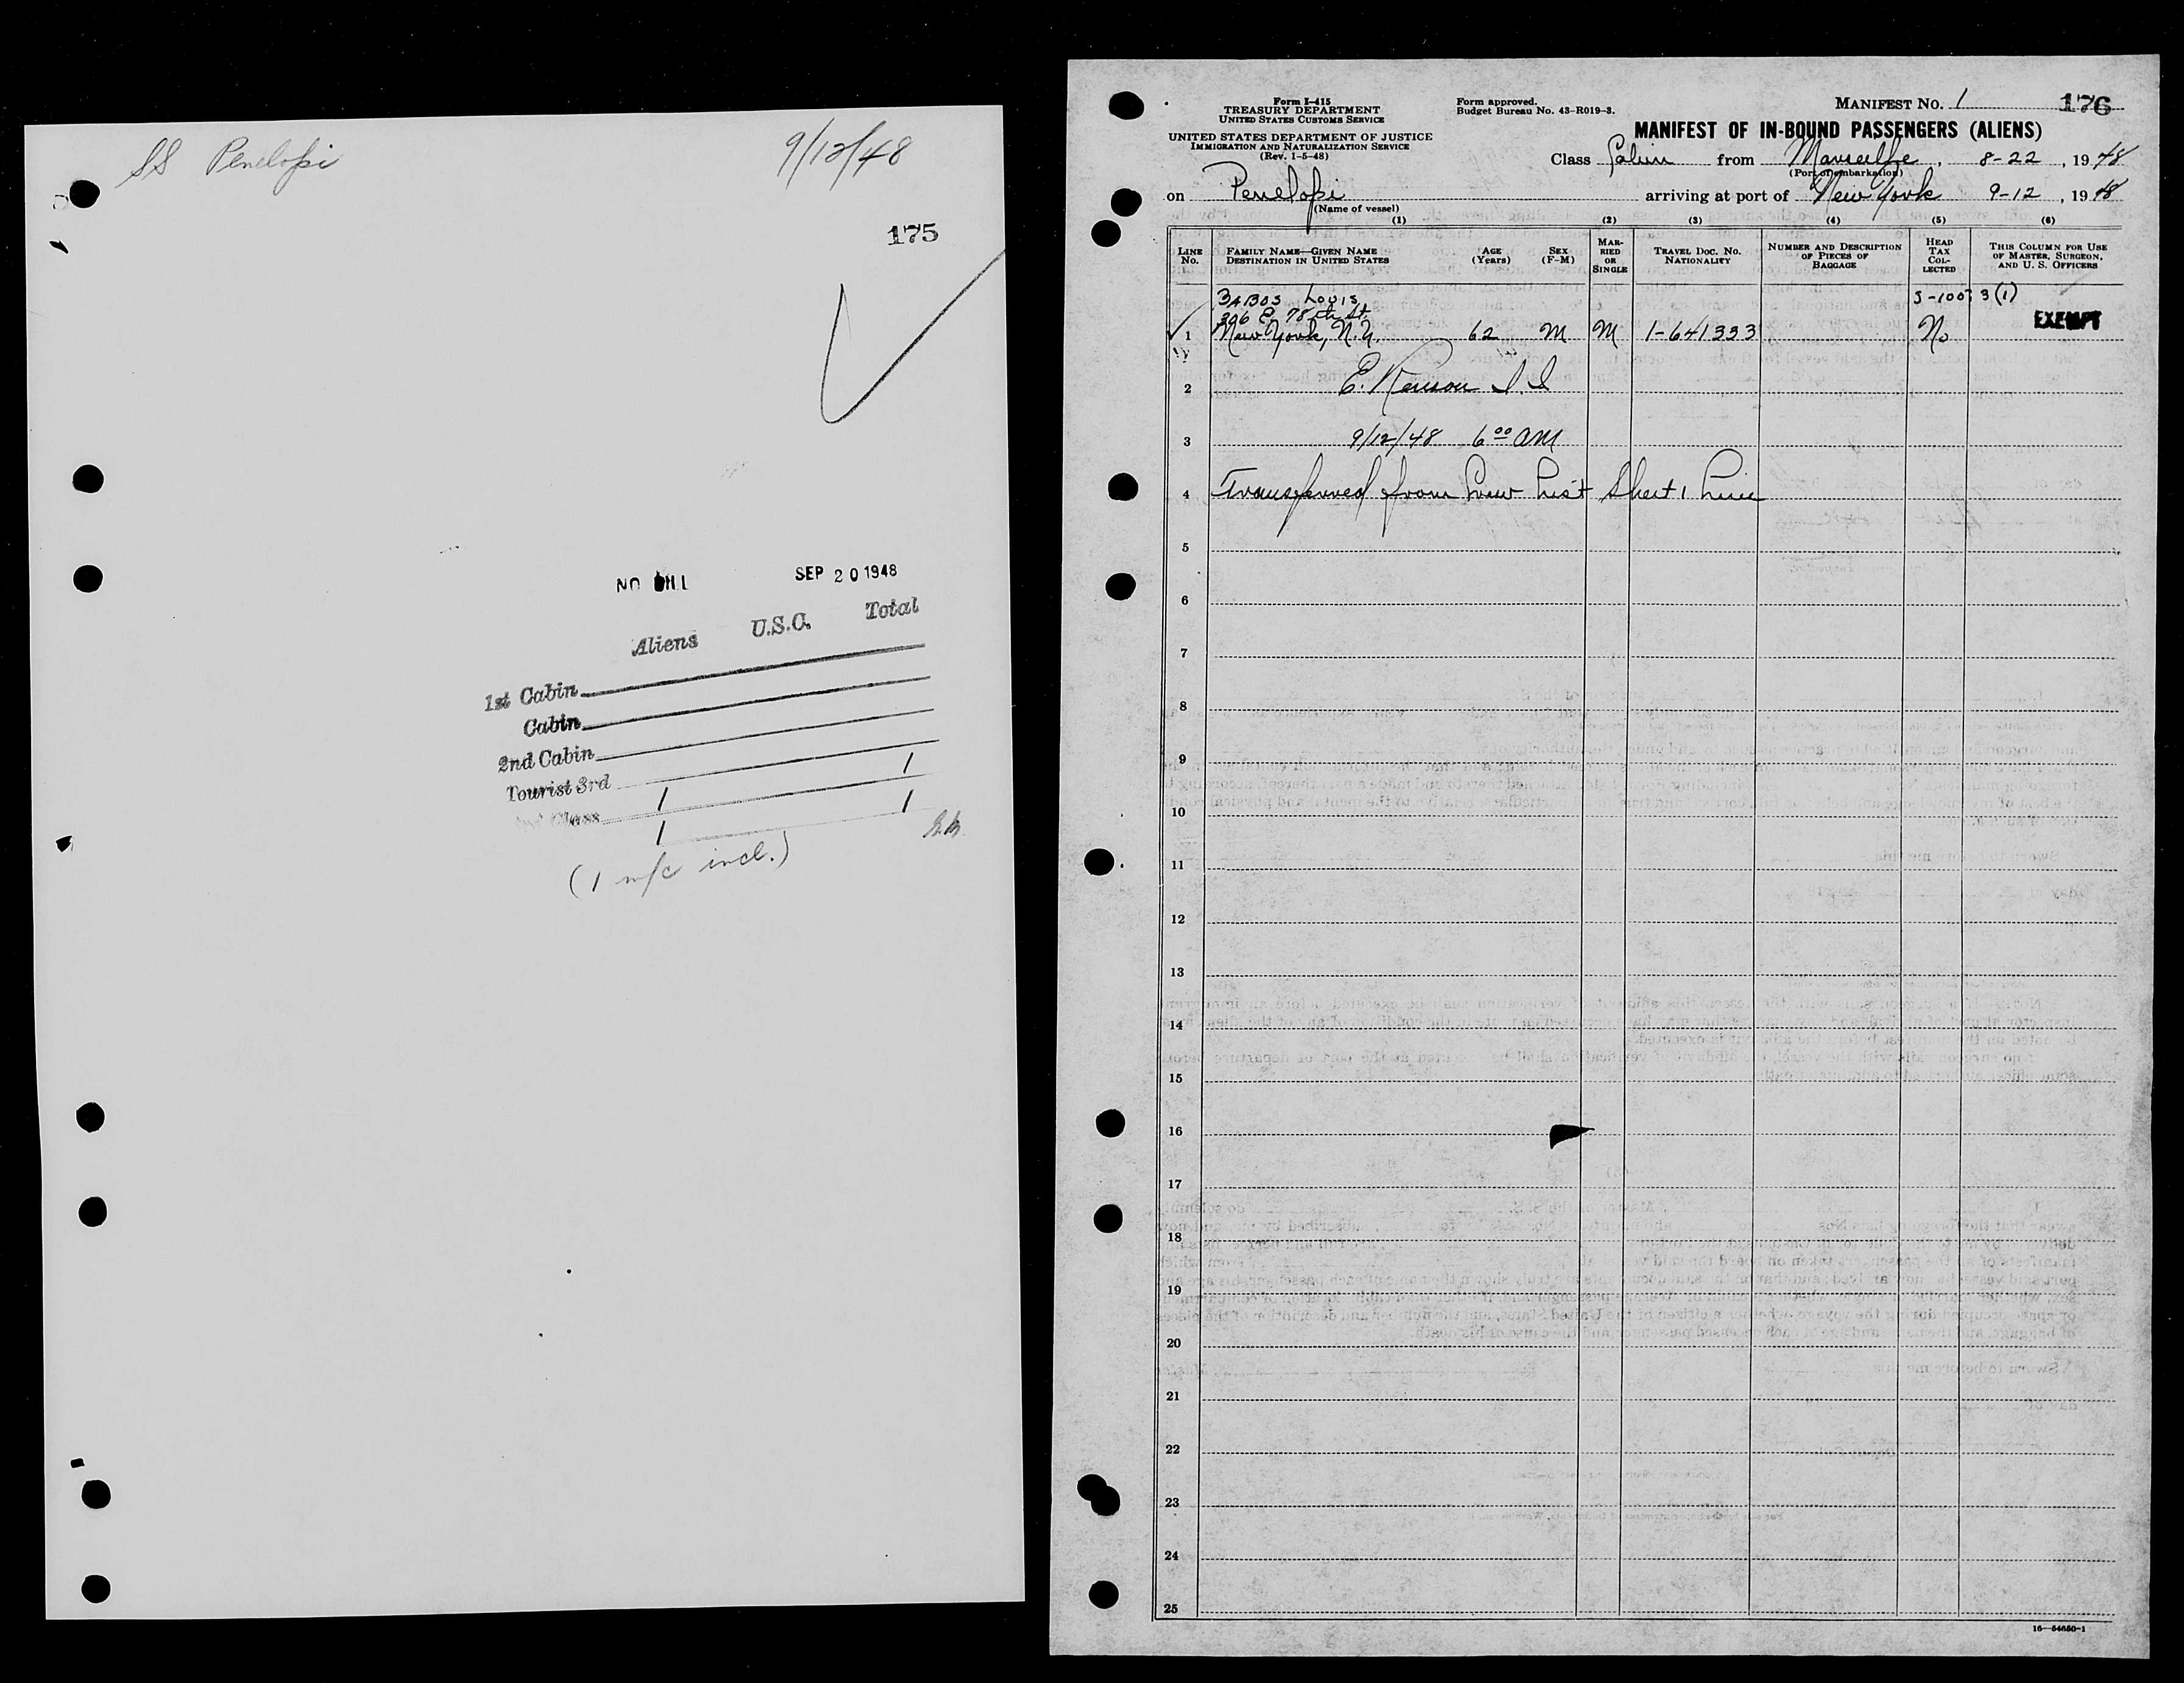 SS Penelopi 9/12/48
175
NO BILL SEP 20 1948
Aliens U.S.C. Total
1st Cabin
Cabin
2nd Cabin
Tourist 3rd 1 1
Class 1 1
(1 w/c incl.)
Form I-415
TREASURY DEPARTMENT
UNITED STATES CUSTOMS SERVICE
UNITED STATES DEPARTMENT OF JUSTICE
IMMIGRATION AND NATURALIZATION SERVICE
(Rev. 1-5-48)
Form approved.
Budget Bureau No. 43-R019-3.
MANIFEST NO. 1 176
MANIFEST OF IN-BOUND PASSENGERS (ALIENS)
Class Cabin from Marseille, 8-22, 1948
(Port of embarkation)
on Penelopi arriving at port of New York 9-12, 1948
(Name of vessel)
(1) (2) (3) (4) (5) (6)
LINE No. FAMILY NAME—GIVEN NAME DESTINATION IN UNITED STATES AGE (Years) SEX (F-M) MARRIED OR SINGLE TRAVEL DOC. NO. NATIONALITY NUMBER AND DESCRIPTION OF PIECES OF BAGGAGE HEAD TAX COLLECTED THIS COLUMN FOR USE OF MASTER, SURGEON, AND U. S. OFFICERS
BABOS Louis 3(1)
306 E. 78th St. EXEMPT
1 New York, N.Y. 62 M M 1-641333 No
2 E.
3 9/12/48 6 00 AM
4 Transferred from Crew List Sheet 1 Line
5
6
7
8
9
10
11
12
13
14
15
16
17
18
19
20
21
22
23
24
25
16—54650-1